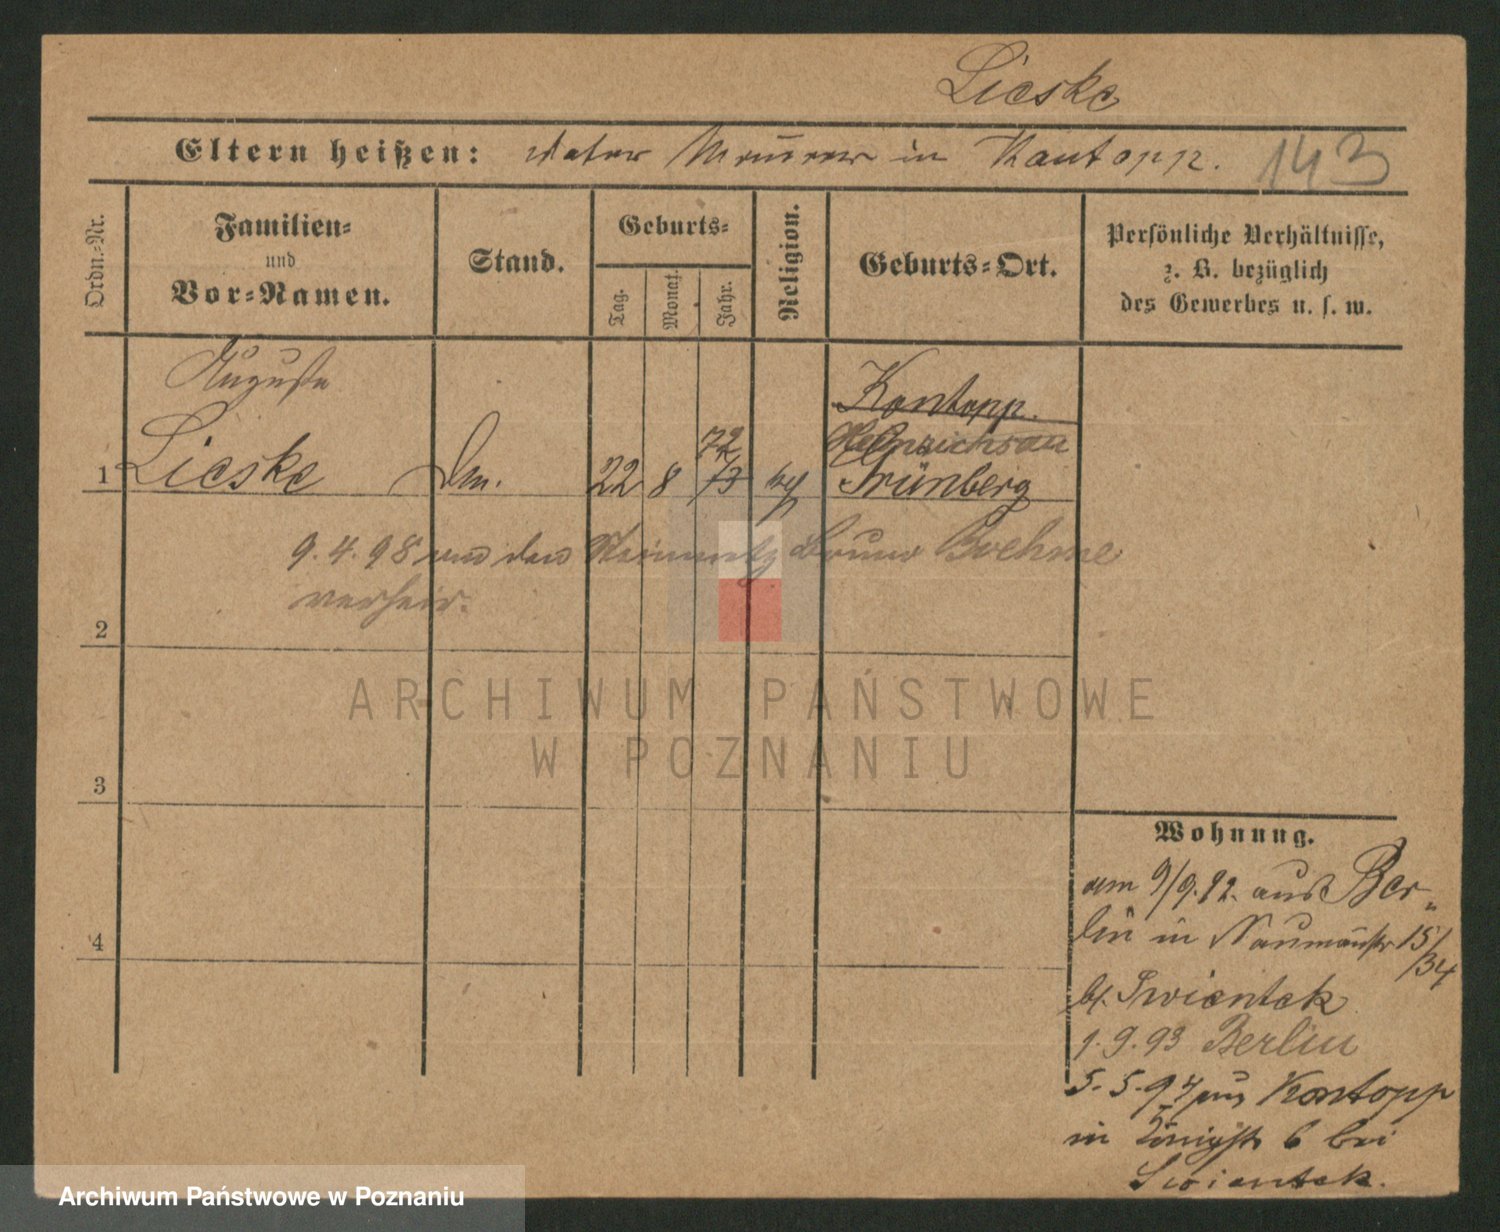 Lieske
Eltern heißen: Vater Maurer in Kontopp. 143
Ordn.-Nr.
Familien-
und
Vor-Namen.
Stand.
Geburts-
Tag.
Monat.
Jahr.
Religion.
Geburts-Ort.
Persönliche Verhältnisse,
z. B. bezüglich
des Gewerbes u. s. w.
Auguste
Kontopp.
72
Heinrichsau
1 Lieske 22 8 73 Grünberg
9.4.98 Bruno Boehme
verheir.
2
ARCHIWUM PAŃSTWOWE
W POZNANIU
3
4
Wohnung.
am 9/9.92. aus Ber-
lin in Naumannstr 15/
34
b/. Swientek
1.9.93 Berlin
5.5.94 aus Kontopp
in Königstr 6 bei
Swientek.
Archiwum Państwowe w Poznaniu